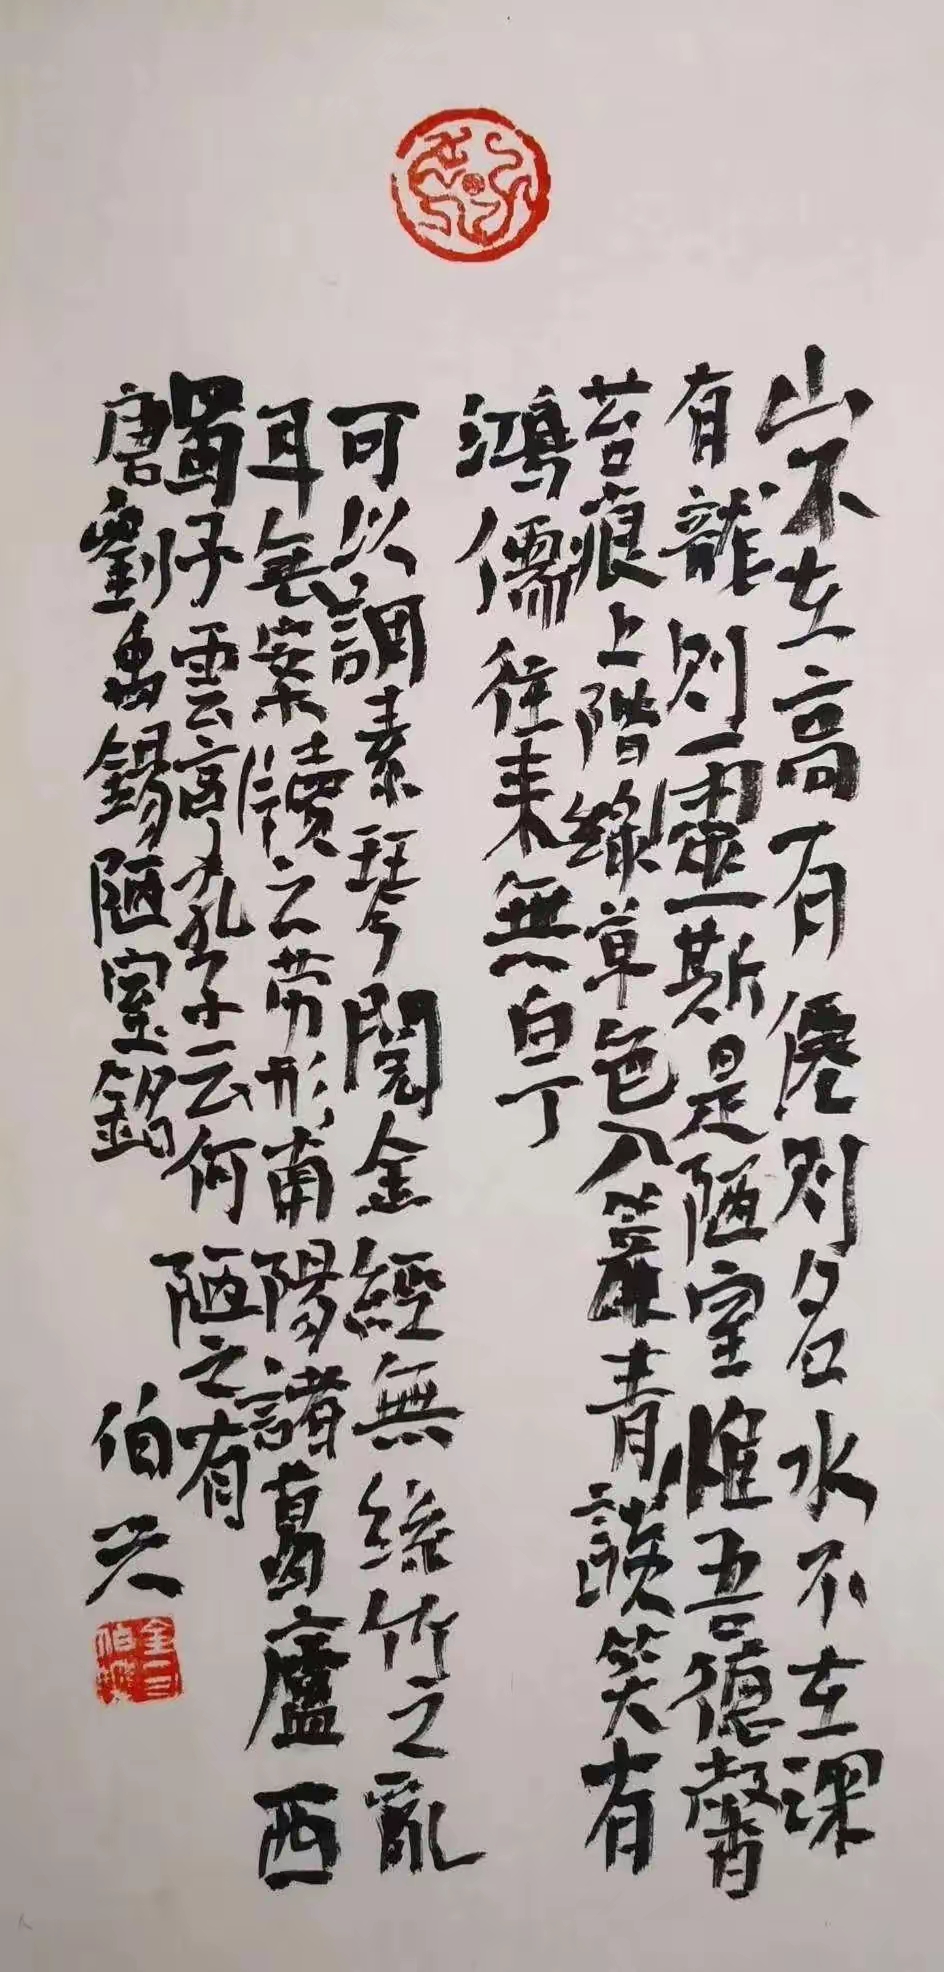 山不在高有僊則名水不在深
有龍則靈斯是陋室惟吾德馨
苔痕上階綠草色入簾青談笑有
鴻儒往来無白丁
可以調素琴閱金經無絲竹之亂
耳無案牘之劳形南陽諸葛廬西
蜀子雲亭孔子云何陋之有
唐劉禹錫陋室銘
伯天